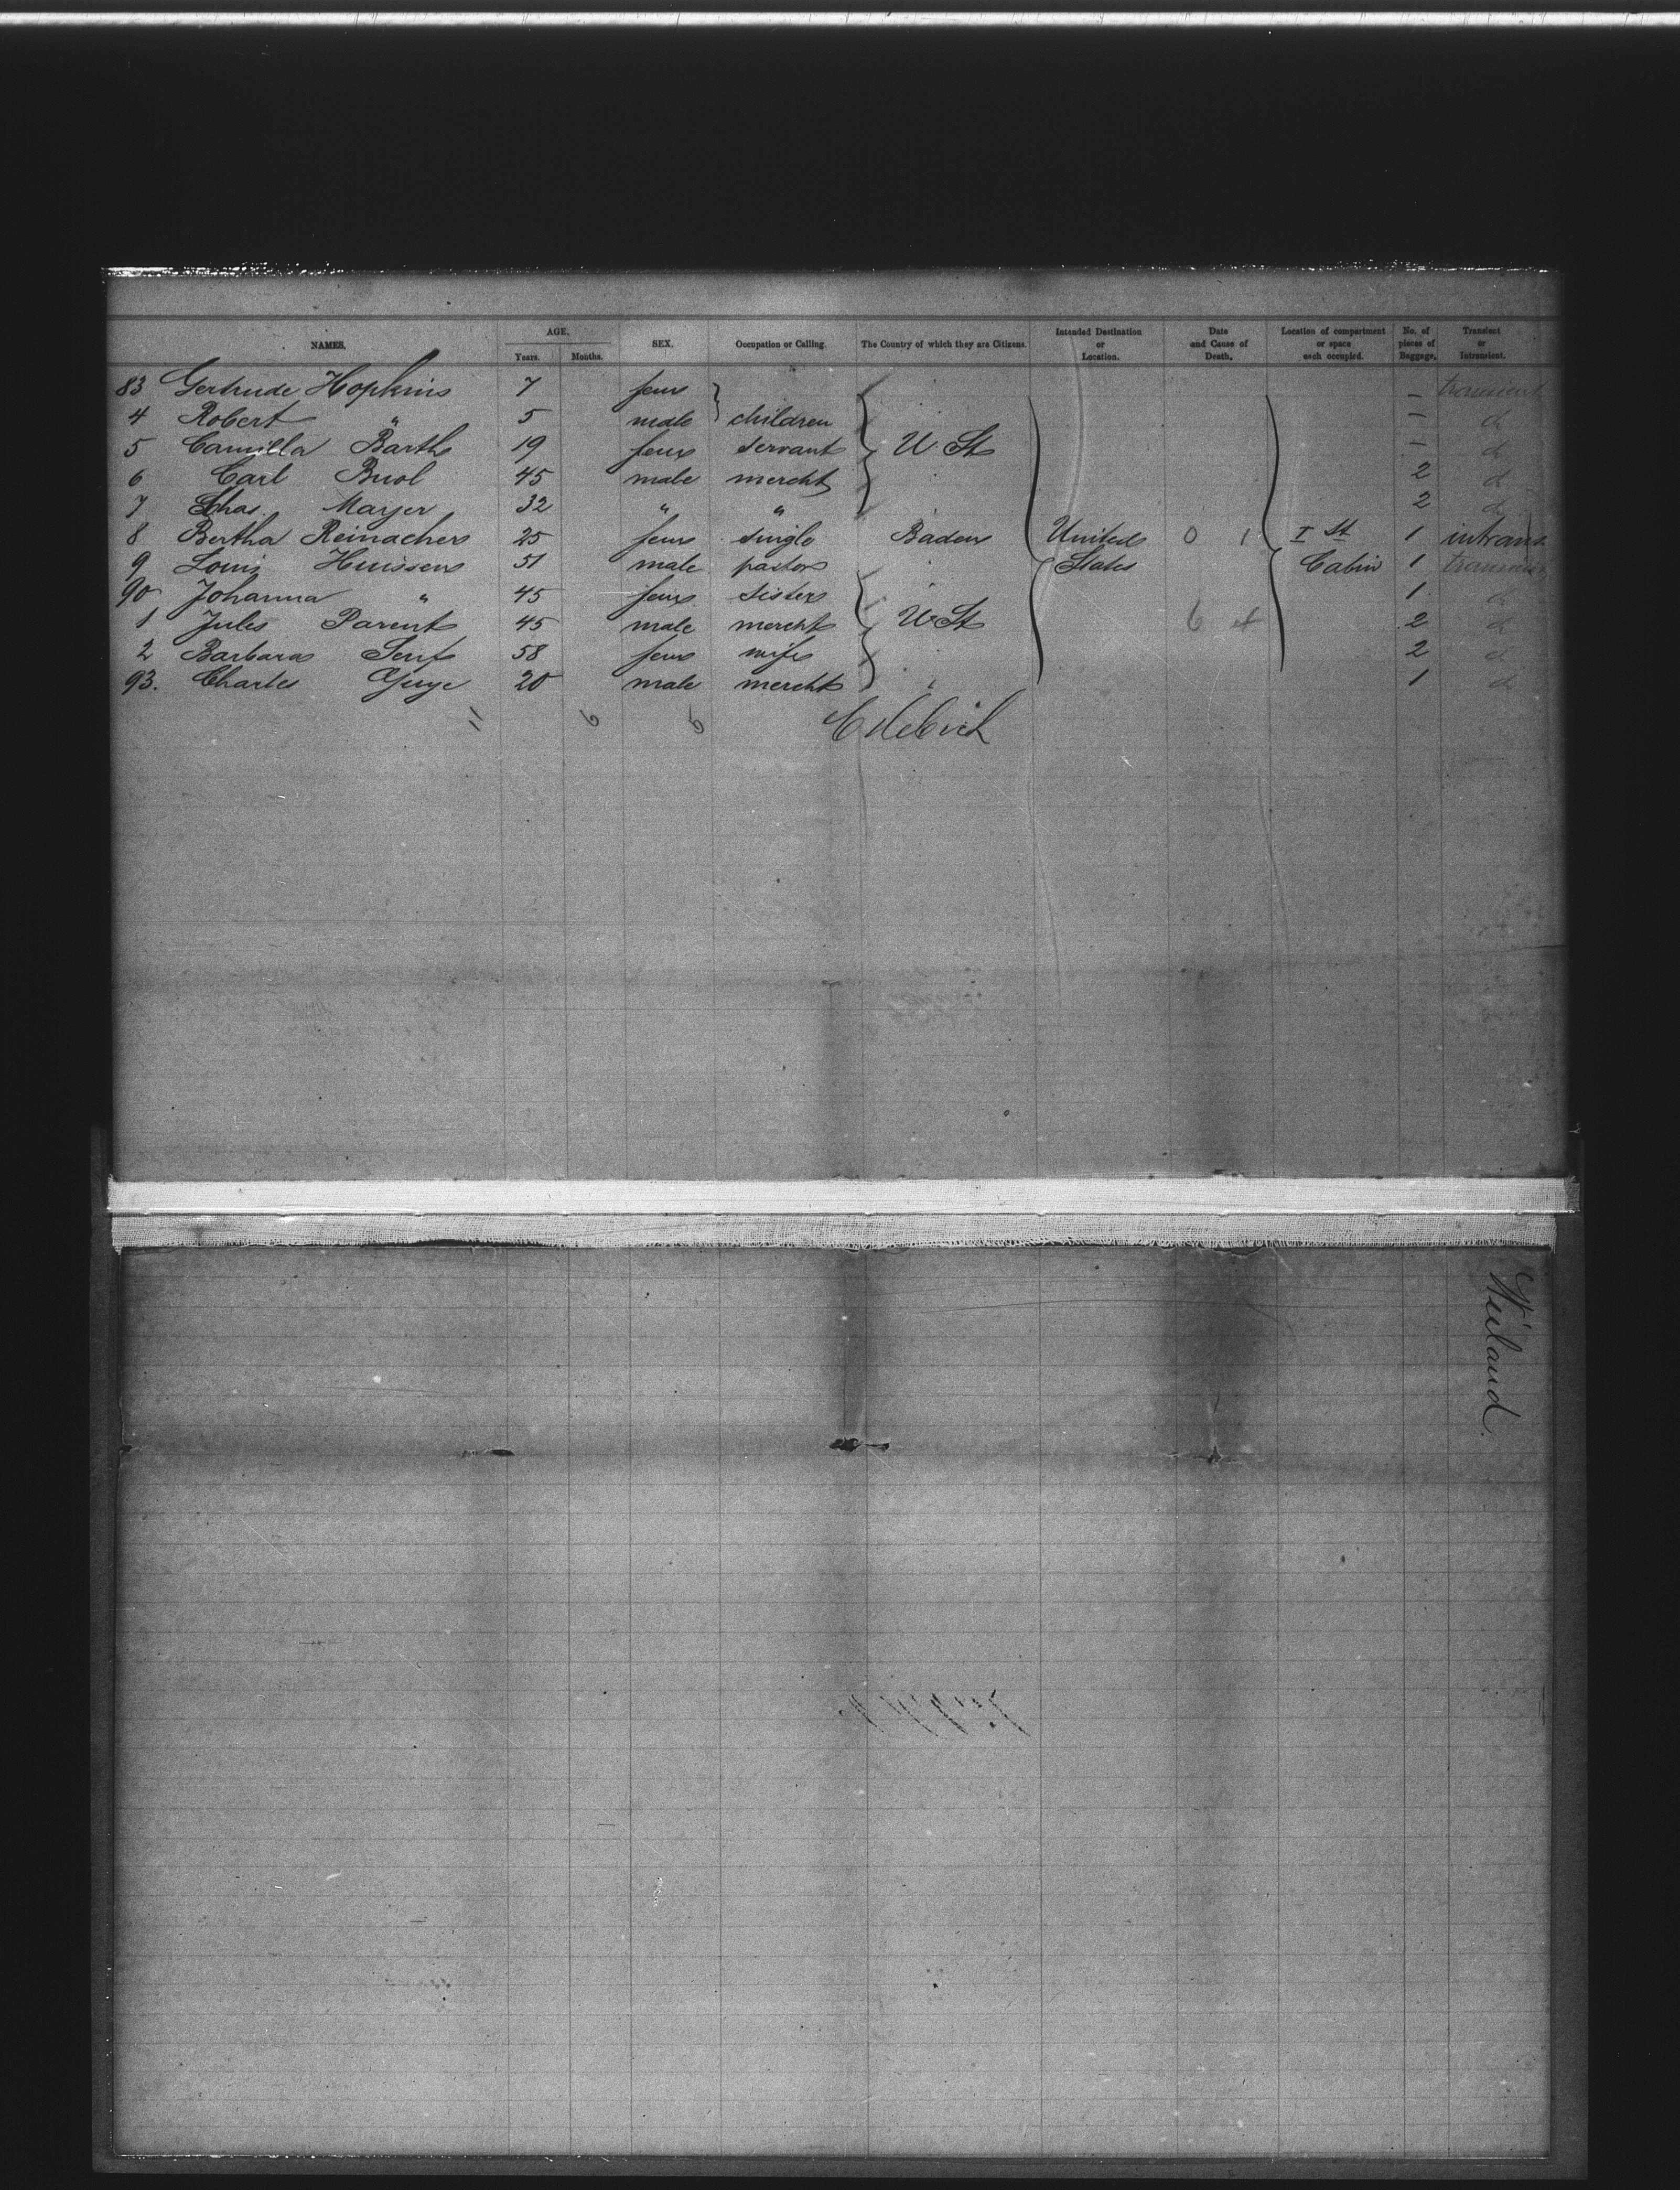 NAMES. AGE. Years. Months. SEX. Occupation or Calling. The Country of which they are Citizens. Intended Destination or Location. Date and Cause of Death. Location of compartment or space each occupied. No. of pieces of Baggage. Transient or Intransient.
83 Gertrude Hopkins 7 fem – transient
4 Robert " 5 male children – d
5 Camilla Barth 19 fem servant U. St – d
6 Carl Buol 45 male mercht 2 d
7 Chas. Mayer 32 " " 2 d
8 Bertha Reinacher 25 fem single Baden United 0 1 I St 1 intrans
9 Louis Huissen 51 male pastor States Cabin 1 transient
90 Johanna " 45 fem sister 1 d
1 Jules Parent 45 male mercht U St 6 4 2 d
2 Barbara 58 fem wife 2 d
93. Charles 20 male mercht 1 d
11 6 6
Wieland.